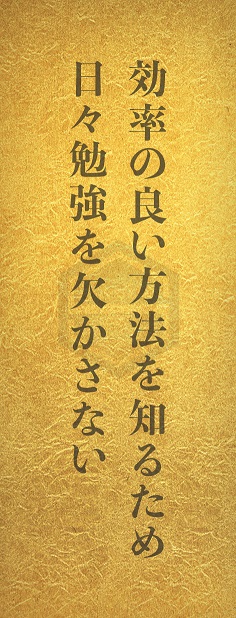 効率の良い方法を知るため
日々勉強を欠かさない